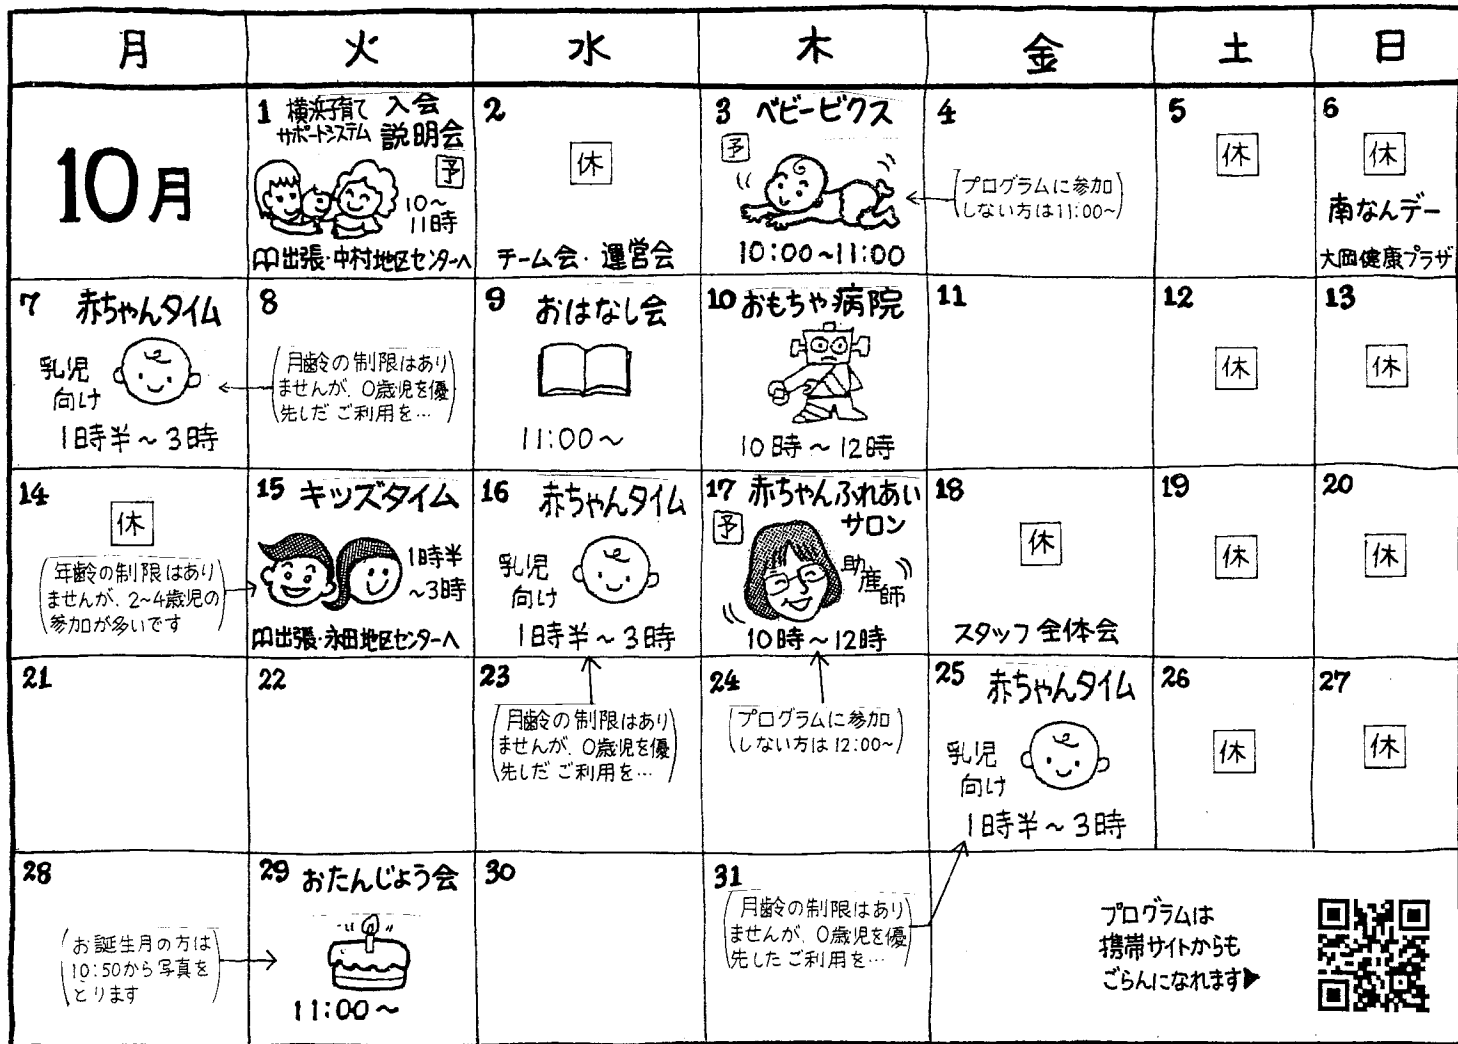 月 火 水 木 金 土 日
10月
1 横浜子育て 入会
サポートシステム 説明会
予
10～
11時
出張・中村地区センターへ
2
休
チーム会・運営会
3 ベビービクス
予
10:00～11:00
4
(プログラムに参加
しない方は11:00～)
5
休
6
休
南なんデー
大岡健康プラザ
7 赤ちゃんタイム
乳児
向け
1時半～3時
8
(月齢の制限はあり
ませんが、0歳児を優
先しだ ご利用を…)
9 おはなし会
11:00～
10 おもちゃ病院
10時～12時
11
12
休
13
休
14
休
(年齢の制限はあり
ませんが、2~4歳児の
参加が多いです)
15 キッズタイム
1時半
～3時
出張・永田地区センターへ
16 赤ちゃんタイム
乳児
向け
1時半～3時
17 赤ちゃんふれあい
サロン
予
助産師
10時～12時
18
休
スタッフ全体会
19
休
20
休
21
22
23
(月齢の制限はあり
ませんが、0歳児を優
先しだ ご利用を…)
24
(プログラムに参加
しない方は12:00～)
25 赤ちゃんタイム
乳児
向け
1時半～3時
26
休
27
休
28
(お誕生月の方は
10:50から写真を
とります)
29 おたんじょう会
11:00～
30
31
(月齢の制限はあり
ませんが、0歳児を優
先した ご利用を…)
プログラムは
携帯サイトからも
ごらんになれます▶